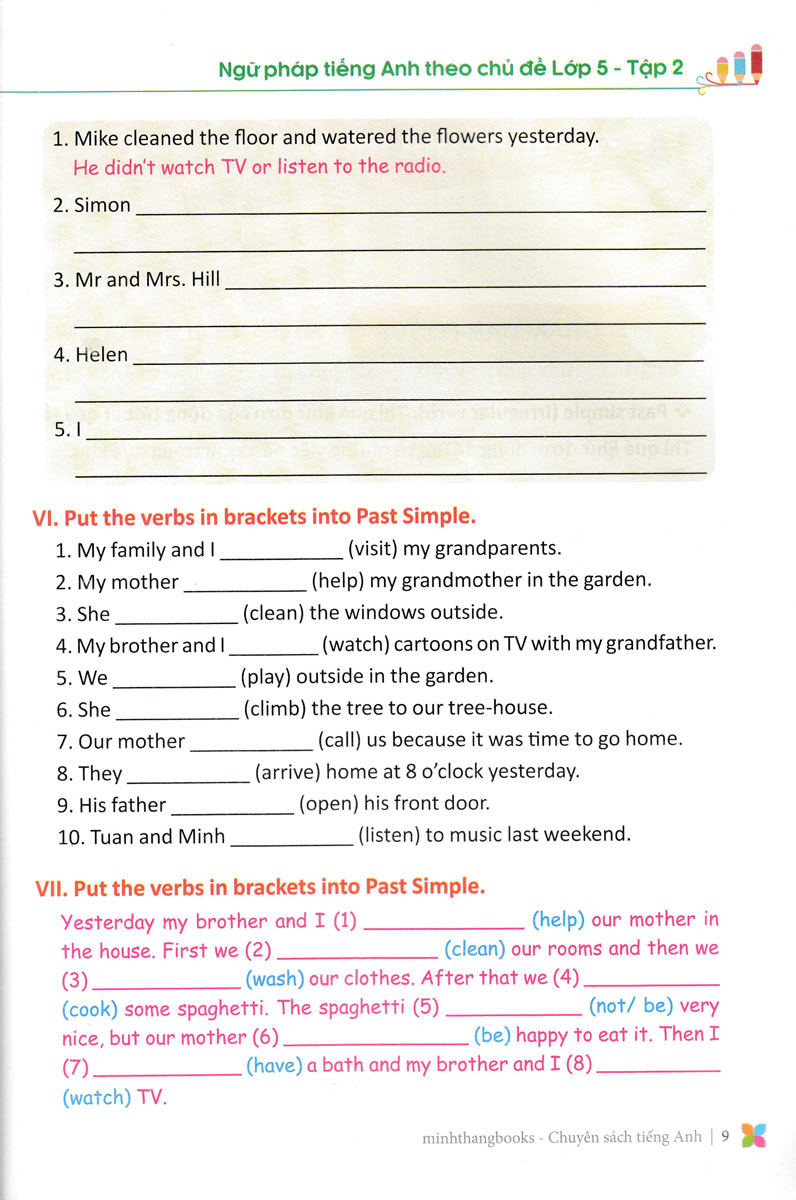 Ngữ pháp tiếng Anh theo chủ đề Lớp 5 - Tập 2
1. Mike cleaned the floor and watered the flowers yesterday.
He didn't watch TV or listen to the radio.
2. Simon ____________
____________
3. Mr and Mrs. Hill ____________
____________
4. Helen ____________
____________
5. I ____________
____________
VI. Put the verbs in brackets into Past Simple.
1. My family and I ____________ (visit) my grandparents.
2. My mother ____________ (help) my grandmother in the garden.
3. She ____________ (clean) the windows outside.
4. My brother and I ____________ (watch) cartoons on TV with my grandfather.
5. We ____________ (play) outside in the garden.
6. She ____________ (climb) the tree to our tree-house.
7. Our mother ____________ (call) us because it was time to go home.
8. They ____________ (arrive) home at 8 o'clock yesterday.
9. His father ____________ (open) his front door.
10. Tuan and Minh ____________ (listen) to music last weekend.
VII. Put the verbs in brackets into Past Simple.
Yesterday my brother and I (1) ____________ (help) our mother in
the house. First we (2) ____________ (clean) our rooms and then we
(3) ____________ (wash) our clothes. After that we (4) ____________
(cook) some spaghetti. The spaghetti (5) ____________ (not/ be) very
nice, but our mother (6) ____________ (be) happy to eat it. Then I
(7) ____________ (have) a bath and my brother and I (8) ____________
(watch) TV.
minhthangbooks - Chuyên sách tiếng Anh | 9